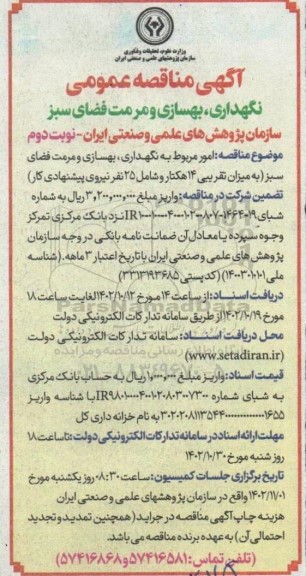 وزارت علوم، تحقیقات و فناوری
سازمان پژوهشهای علمی و صنعتی ایران
آگهی مناقصه عمومی
نگهداری، بهسازی و مرمت فضای سبز
سازمان پژوهش های علمی و صنعتی ایران - نوبت دوم
موضوع مناقصه: امور مربوط به نگهداری، بهسازی و مرمت فضای
سبز (به میزان تقریبی ۱۴ هکتار و شامل ۲۵ نفر نیروی پیشنهادی کار)
تضمین شرکت در مناقصه: واریز مبلغ ۳,۲۰۰,۰۰۰,۰۰۰ ریال به شماره
شبای نزد بانک مرکزی تمرکز
وجوه سپرده یا معادل آن ضمانت نامه بانکی در وجه سازمان
پژوهش های علمی و صنعتی ایران با تاریخ اعتبار ۳ ماهه. (شناسه
ملی ۱۴۰۰۳۰۱۰۱۰۱) (کدپستی ۳۳۱۳۱۹۳۶۸۵)
دریافت اسناد: از ساعت ۱۴ مورخ ۱۴۰۲/۱۰/۱۲ لغایت ساعت ۱۸
مورخ ۱۴۰۲/۱۰/۱۹ از طریق سامانه تدارکات الکترونیکی دولت
محل دریافت اسناد: سامانه تدارکات الکترونیکی دولت
(www.setadiran.ir)
قیمت اسناد: واریز مبلغ ۱,۰۰۰,۰۰۰ ریال به حساب بانک مرکزی
به شبای شماره با شناسه واریز
به نام خزانه داری کل
مهلت ارائه اسناد در سامانه تدارکات الکترونیکی دولت: تا ساعت ۱۸
روز شنبه مورخ ۱۴۰۲/۱۰/۳۰
تاریخ برگزاری جلسات کمیسیون: ساعت ۰۸:۳۰ روز یکشنبه مورخ
۱۴۰۲/۱۱/۰۱ واقع در سازمان پژوهشهای علمی و صنعتی ایران
هزینه چاپ آگهی مناقصه در جراید (همچنین تمدید و تجدید
احتمالی آن) به عهده برنده مناقصه می باشد.
(تلفن تماس: ۵۷۴۱۶۵۸۱ و ۵۷۴۱۶۸۶۸)